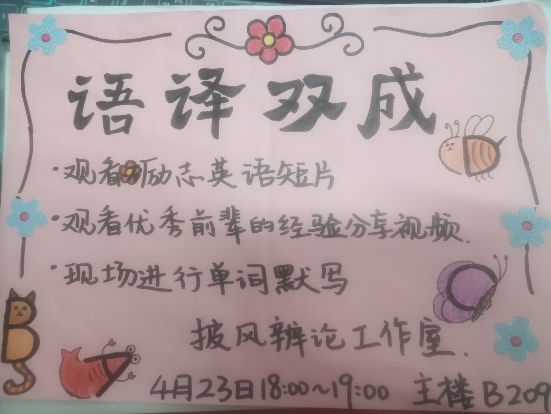 语译双成
·观看励志英语短片
·观看优秀前辈的经验分享视频.
·现场进行单词默写
披风辨论工作室.
4月23日18:00~19:00 主楼B209